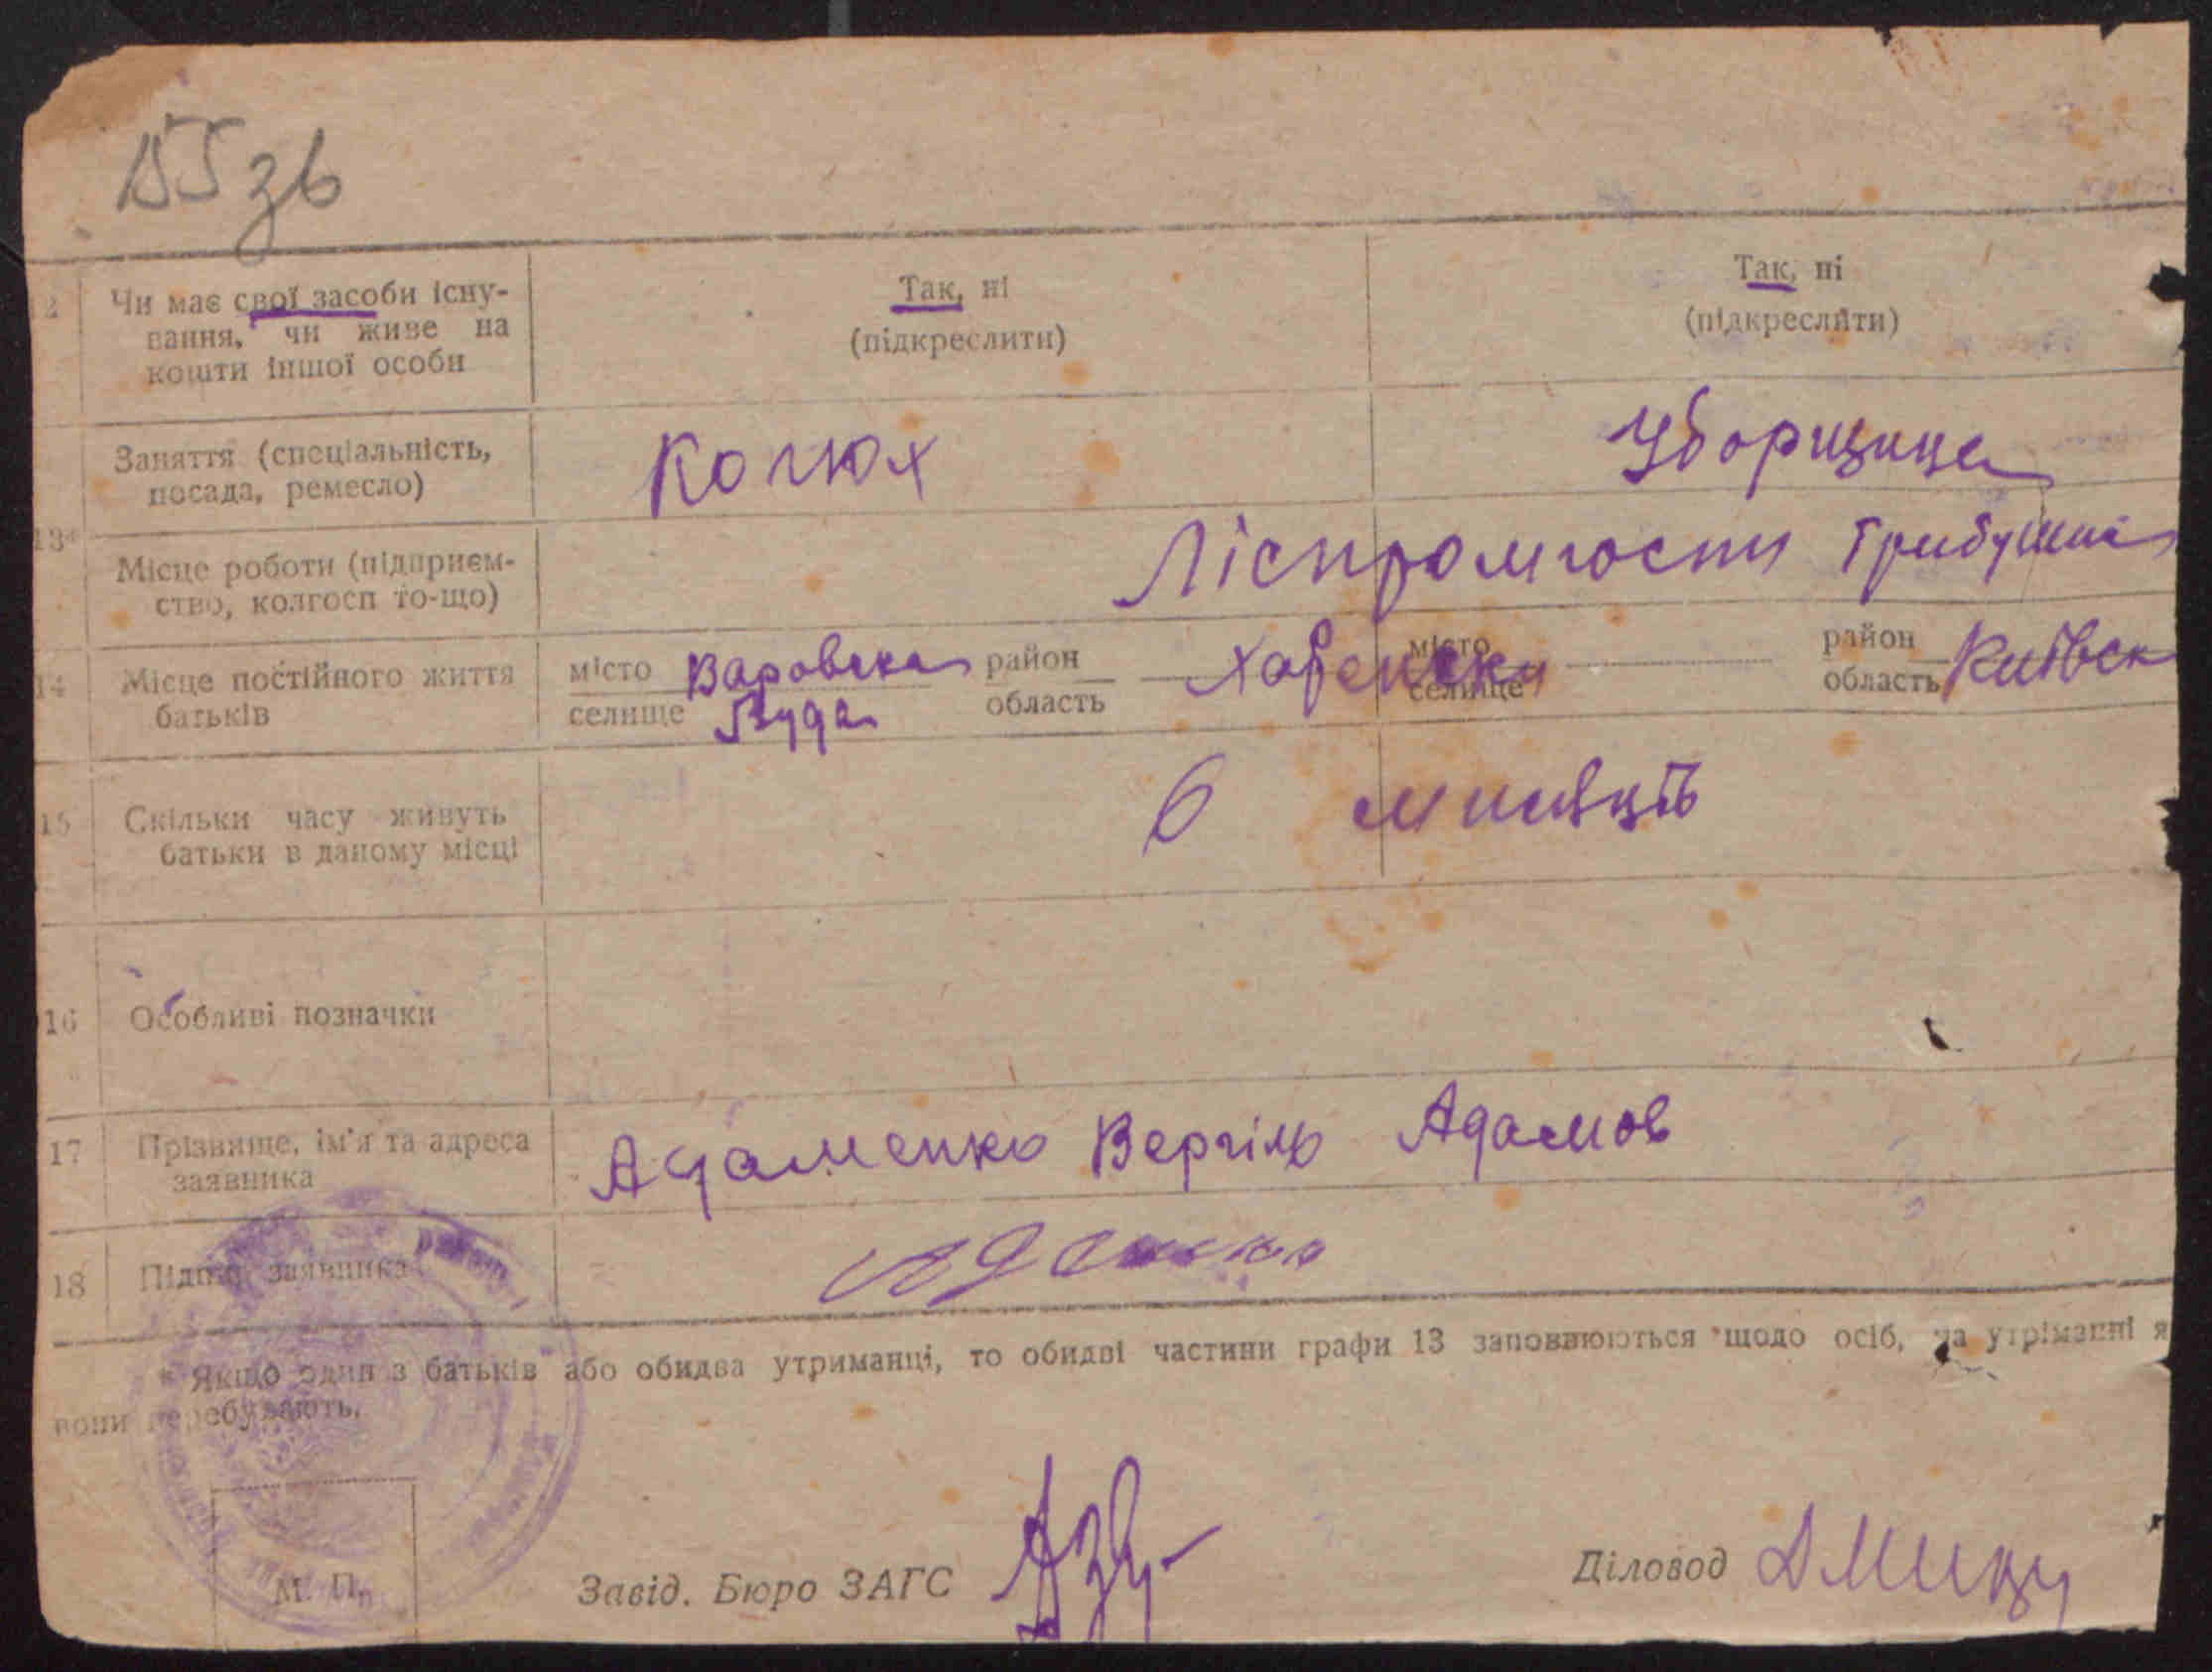 2 Чи має свої засоби існу-
вання, чи живе на
кошти іншої особи
Так, ні
(підкреслити)
Так, ні
(підкреслити)
13*
Заняття (спеціальність,
посада, ремесло)
Конюх
Уборщица
Місце роботи (підприєм-
ство, колгосп то-що)
Ліспромгосп
14 Місце постійного життя
батьків
місто
селище
Варовска
Буда
район
область
місто
селище
район
область
Київск
15 Скільки часу живуть
батьки в даному місці
6
16 Особливі позначки
17 Прізвище, ім'я та адреса
заявника
Адаменко Вергіль Адамов
18 Підпис заявника
* Якщо один з батьків або обидва утриманці, то обидві частини графи 13 заповнюються щодо осіб, на утріманні я
вони перебувають.
М. П.
Завід. Бюро ЗАГС
Діловод